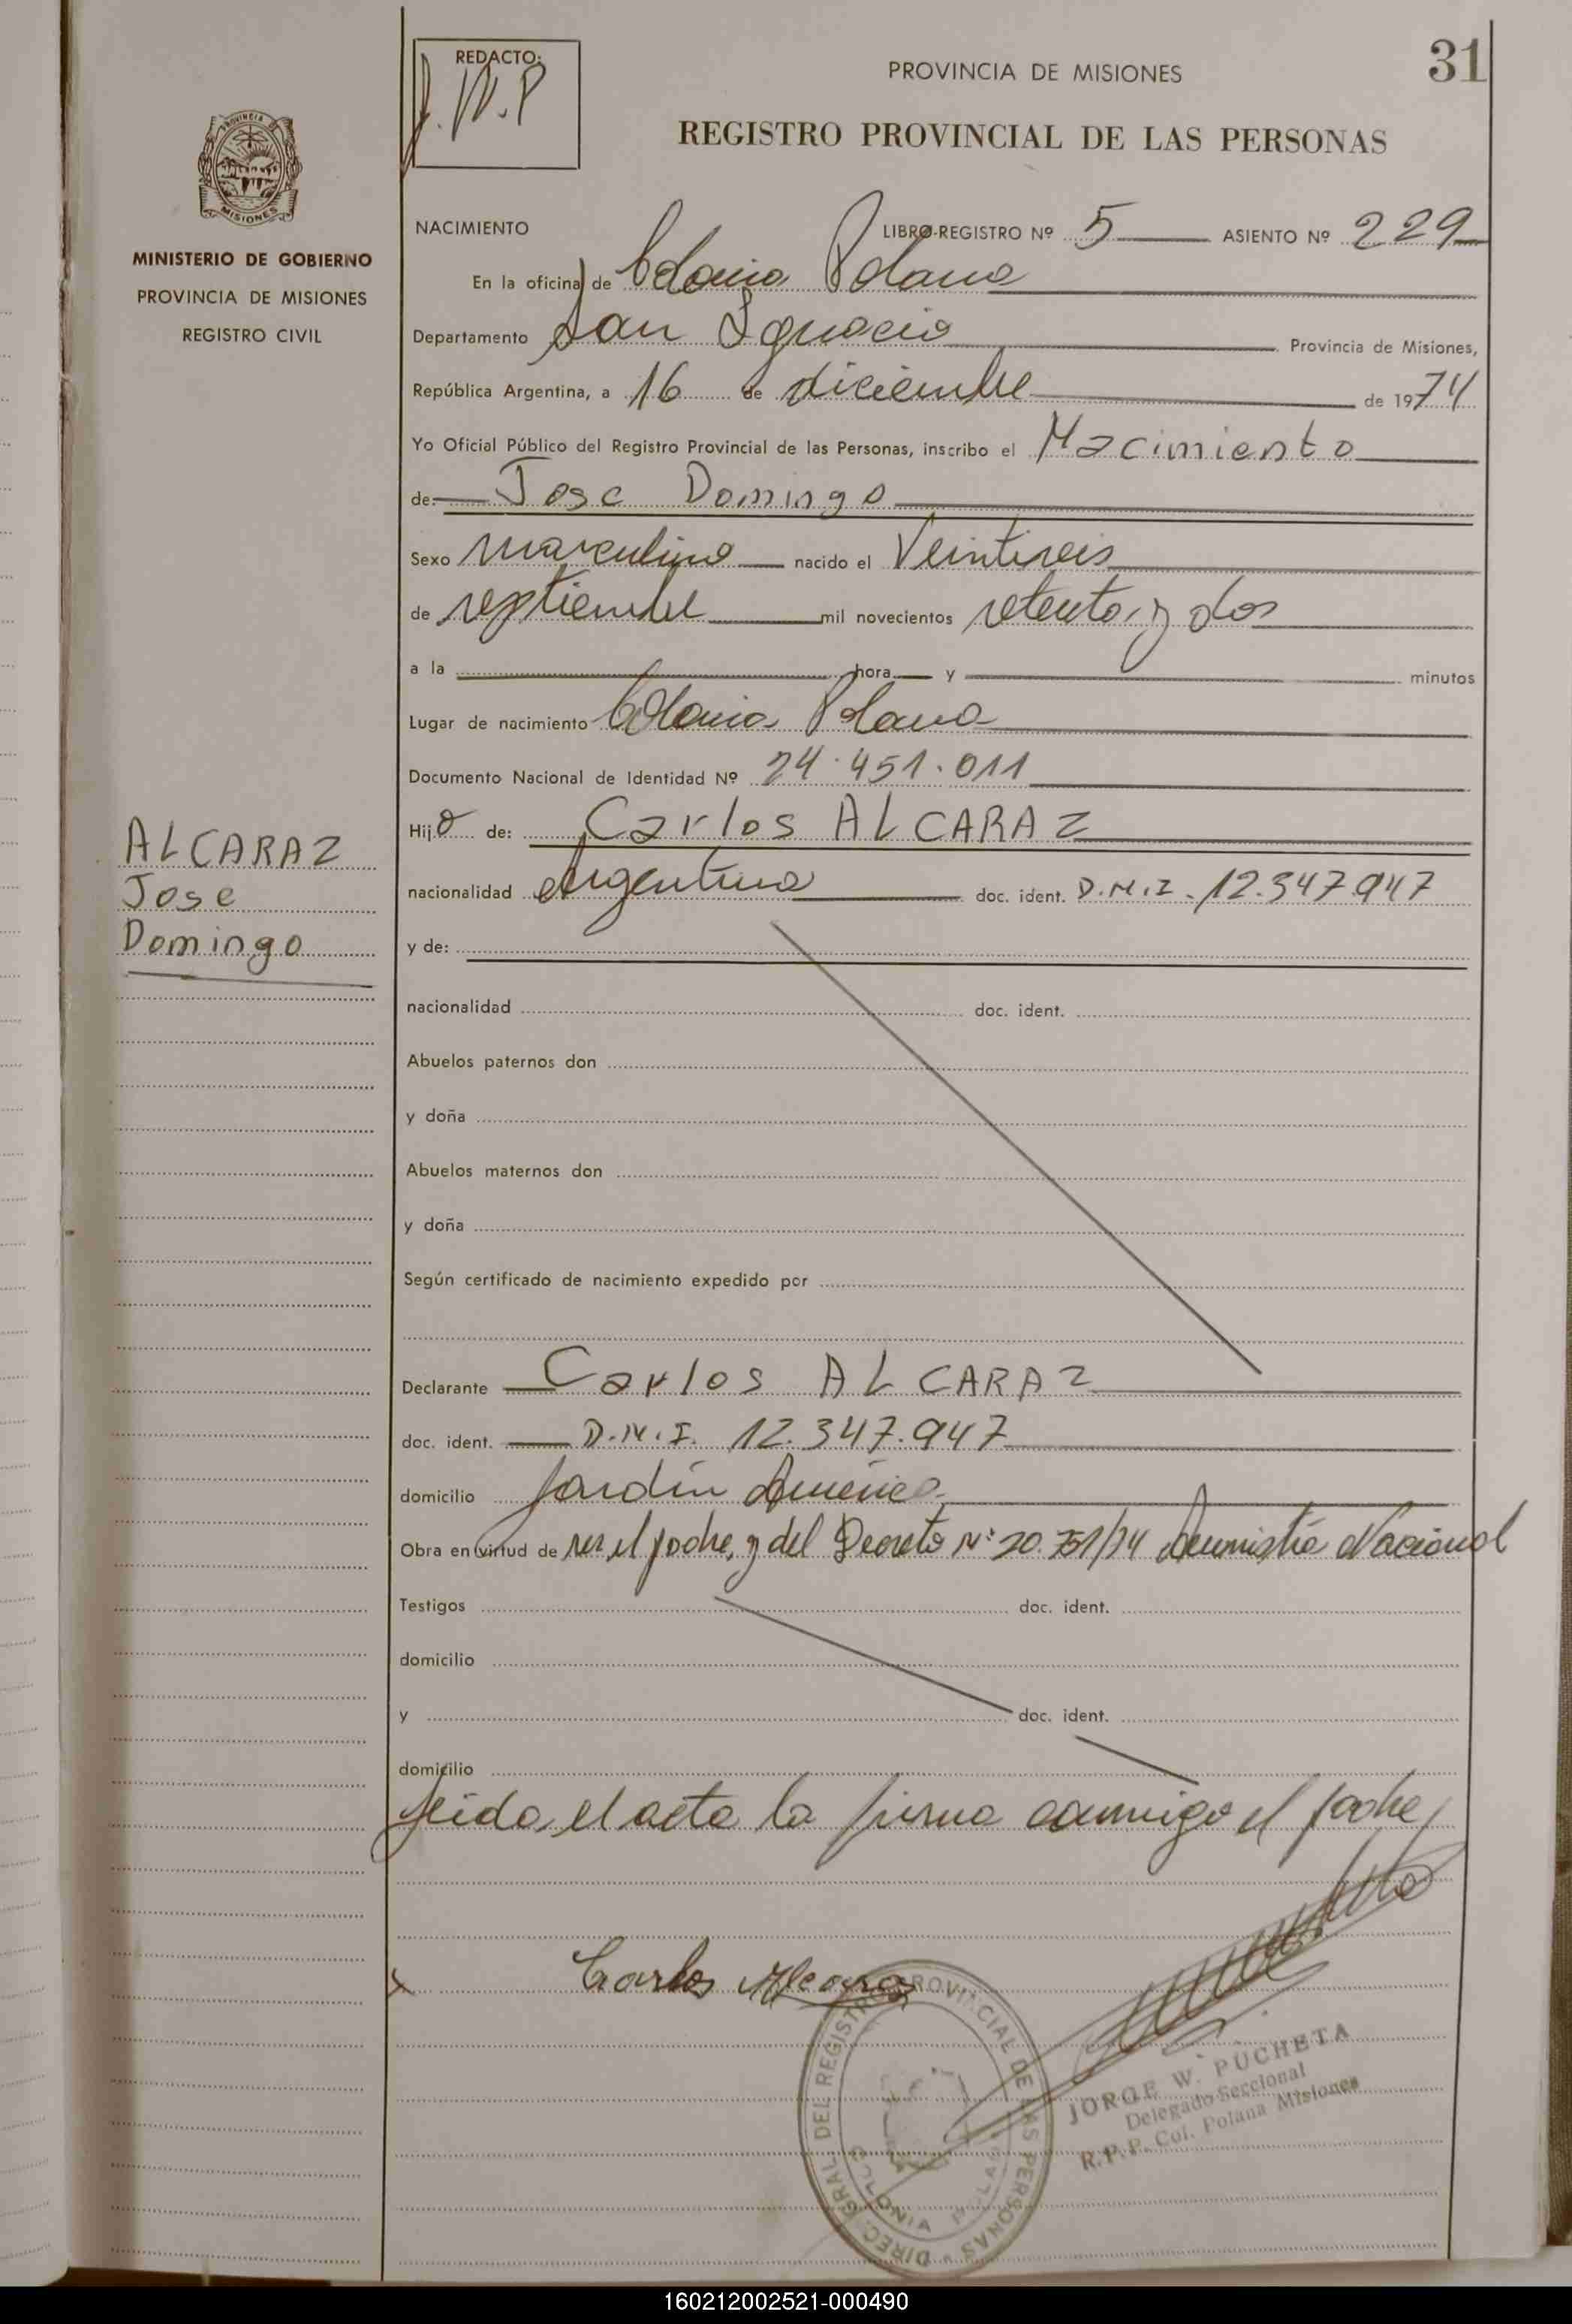 31
REDACTO:
J.W.P
PROVINCIA DE MISIONES
REGISTRO PROVINCIAL DE LAS PERSONAS
PROVINCIA
MISIONES
MINISTERIO DE GOBIERNO
PROVINCIA DE MISIONES
REGISTRO CIVIL
NACIMIENTO LIBRO-REGISTRO Nº 5 ASIENTO Nº 229
En la oficina de Colonia Polana
Departamento San Ignacio Provincia de Misiones,
República Argentina, a 16 de diciembre de 1974
Yo Oficial Público del Registro Provincial de las Personas, inscribo el Nacimiento
de: Jose Domingo
Sexo masculino nacido el Veintiseis
de septiembre mil novecientos setenta y dos
a la hora y minutos
Lugar de nacimiento Colonia Polana
Documento Nacional de Identidad Nº 24.451.011
Hijo de: Carlos ALCARAZ
ALCARAZ
Jose
Domingo
nacionalidad Argentina doc. ident. D.N.I. 12.347.947
y de:
nacionalidad doc. ident.
Abuelos paternos don
y doña
Abuelos maternos don
y doña
Según certificado de nacimiento expedido por
Declarante Carlos ALCARAZ
doc. ident. D.N.I. 12.347.947
domicilio Jardín América
Obra en virtud de ser el padre, y del Decreto Nº 20.751/74 Amnistía Nacional
Testigos doc. ident.
domicilio
y doc. ident.
domicilio
Leída el acta la firma conmigo el padre
Carlos Alcaraz
DIREC. GRAL. DEL REGISTRO PROVINCIAL DE LAS PERSONAS
COLONIA POLANA
JORGE W. PUCHETA
Delegado Seccional
R.P.P. Col. Polana Misiones
160212002521-000490